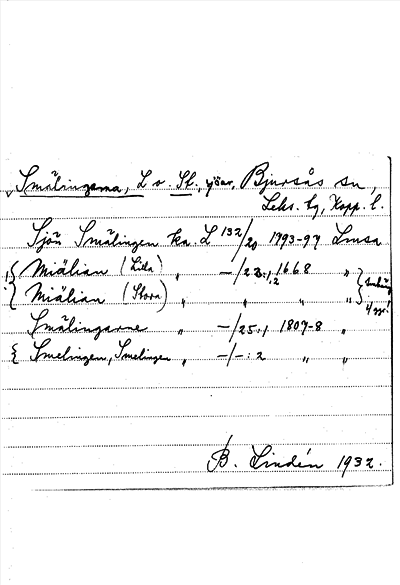 Smälingarna, L o. St., sjöar, Bjursås sn,
Leks. tg, Kopp. l.
Sjön Smälingen ka. L 132/20 1793-97 Lmsa
Miälian (Lilla) " -/23:1,2 1668 "
Miälian (Stora) " " " "
Smälingarne " -/25:1 1807-8 "
Smelingen, Smelingen " -/-:2 " "
B. Lindén 1932.